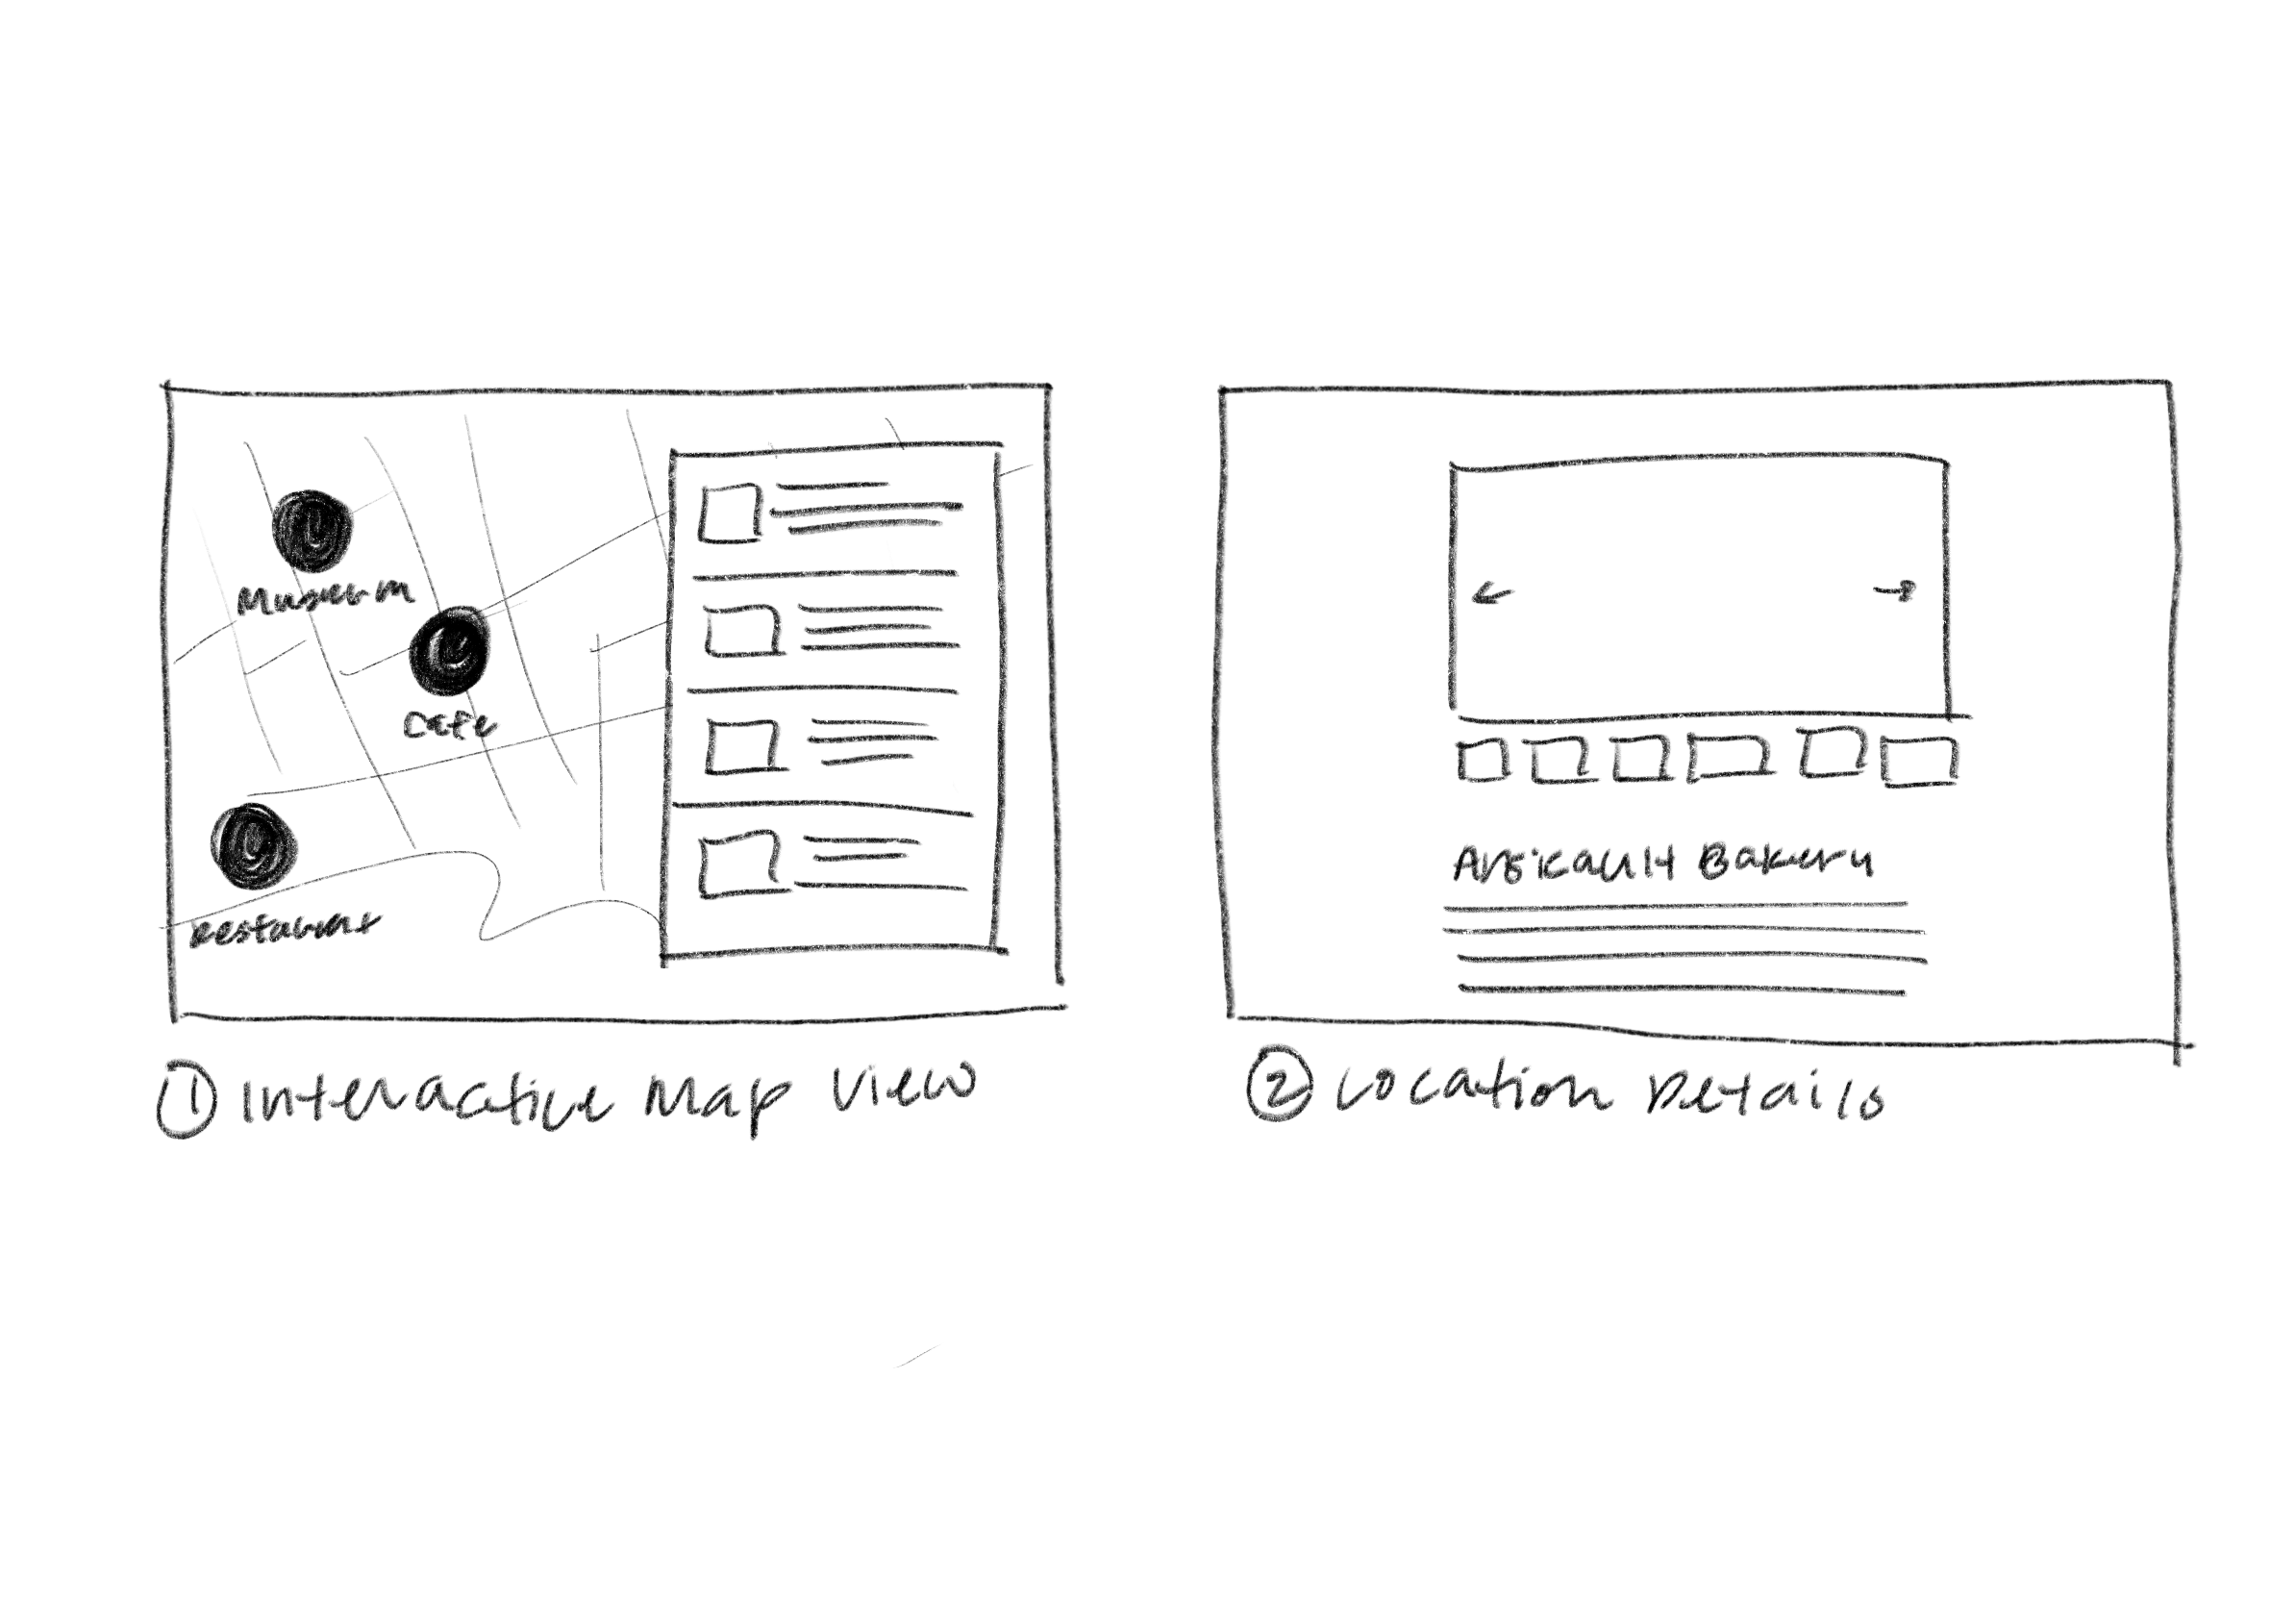 Museum
Cafe
Restaurant
① Interactive Map View
Arsicault Bakery
② Location Details